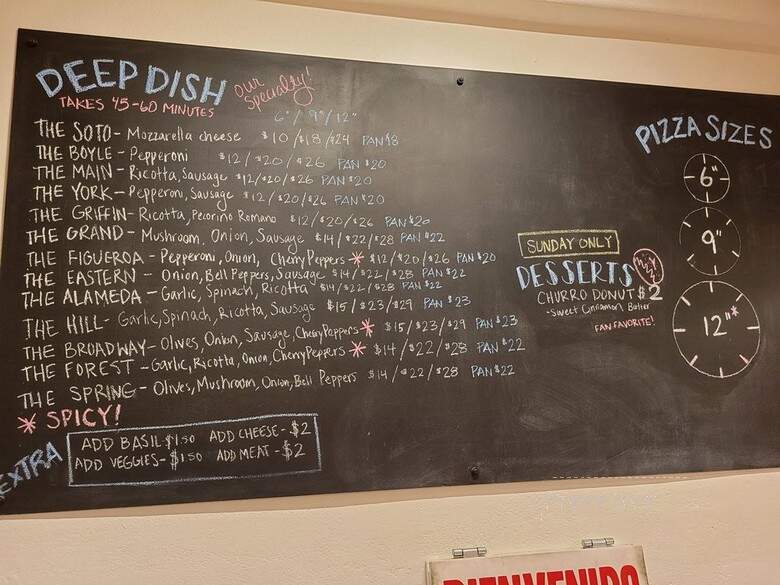 DEEP DISH our specialty!
TAKES 45-60 MINUTES
6"/9"/12"
THE SOTO - Mozzarella cheese $10/$18/$24 PAN $18
THE BOYLE - Pepperoni $12/$20/$26 PAN $20
THE MAIN - Ricotta, Sausage $12/$20/$26 PAN $20
THE YORK - Pepperoni, Sausage $12/$20/$26 PAN $20
THE GRIFFIN - Ricotta, Pecorino Romano $12/$20/$26 PAN $20
THE GRAND - Mushroom, Onion, Sausage $14/$22/$28 PAN $22
THE FIGUEROA - Pepperoni, Onion, Cherry Peppers * $12/$20/$26 PAN $20
THE EASTERN - Onion, Bell Peppers, Sausage $14/$22/$28 PAN $22
THE ALAMEDA - Garlic, Spinach, Ricotta $14/$22/$28 PAN $22
THE HILL - Garlic, Spinach, Ricotta, Sausage $15/$23/$29 PAN $23
THE BROADWAY - Olives, Onion, Sausage, Cherry Peppers * $15/$23/$29 PAN $23
THE FOREST - Garlic, Ricotta, Onion, Cherry Peppers * $14/$22/$28 PAN $22
THE SPRING - Olives, Mushroom, Onion, Bell Peppers $14/$22/$28 PAN $22
* SPICY!
EXTRA
ADD BASIL $1.50 ADD CHEESE - $2
ADD VEGGIES - $1.50 ADD MEAT - $2
SUNDAY ONLY
DESSERTS
CHURRO DONUT $2
- Sweet Cinnamon Butter
FAN FAVORITE!
PIZZA SIZES
6"
9"
12"*
BIENVENIDO